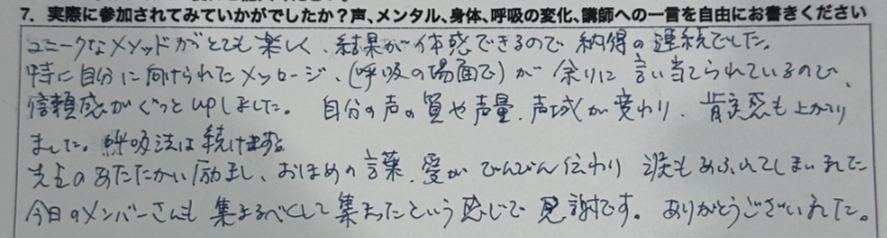 7. 実際に参加されてみていかがでしたか？声、メンタル、身体、呼吸の変化、講師への一言を自由にお書きください
ユニークなメソッドがとても楽しく、結果が体感できるので納得の連続でした。
特に自分に向けられたメッセージ、(呼吸の場面で)が余りに言い当てられているので、
信頼感がぐっとupしました。自分の声の質や声量、声域が変わり、肯定感も上がり
ました。呼吸法は続けます。
先生のあたたかい励まし、おほめの言葉、愛がびんびん伝わり涙もあふれてしまいました
今日のメンバーさんも集まるべくして集まったという感じで感謝です。ありがとうございました。